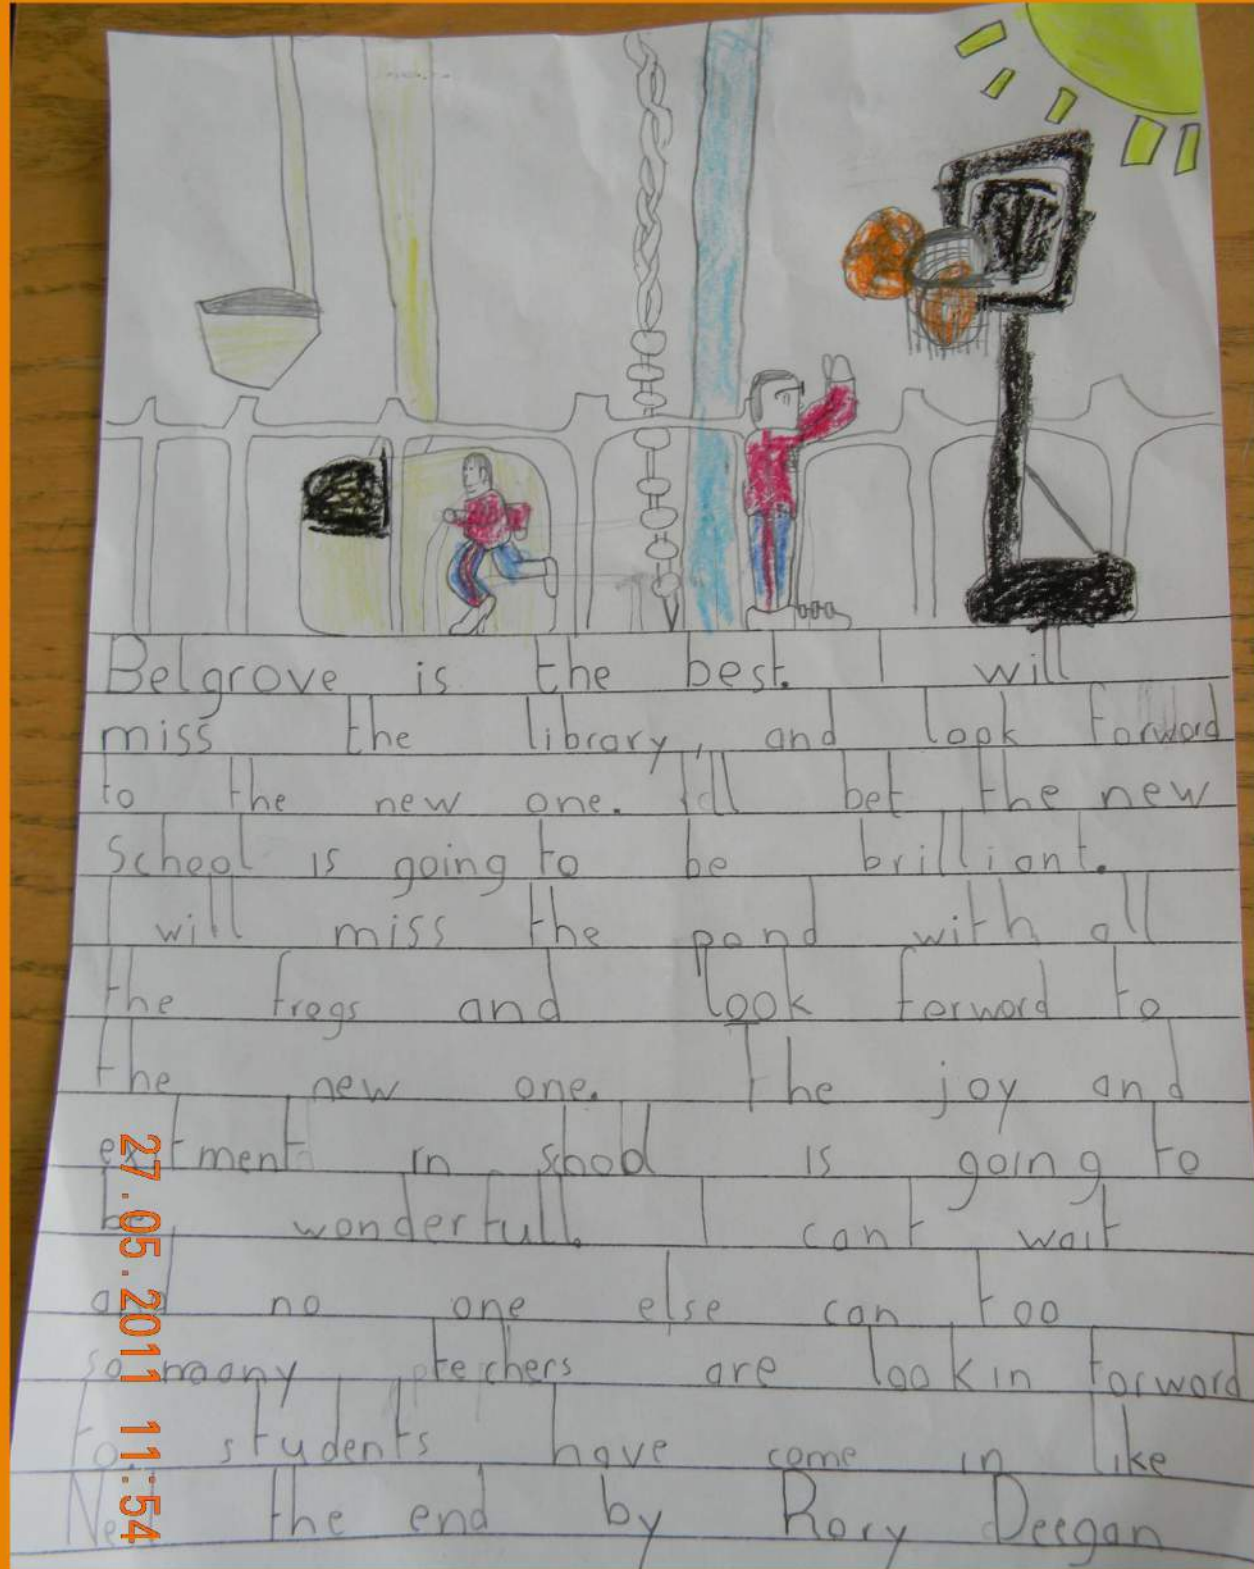 Belgrove is the best. I will
miss the library, and look forward
to the new one. I'll bet the new
school is going to be brilliant.
I will miss the pond with all
the frogs and look forward to
the new one. The joy and
exitment in school is going to
be wonderfull. I cant wait
and no one else can too
so many techers are lookin forward
to. students have come in like
the end by Rory Deegan
27.05.2011 11:54